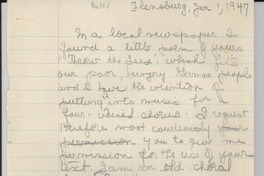 Flensburg, Jan 1, 1947
In a local newspaper I
found a little poem of yours
"Throw the Seed", which fits
our poor, hungry German people
and I have the intention of
putting into music for a
four-voiced chorus. I request
therefore most courteously your
permission you to give me
permission for the use of your
text. I am an old choral